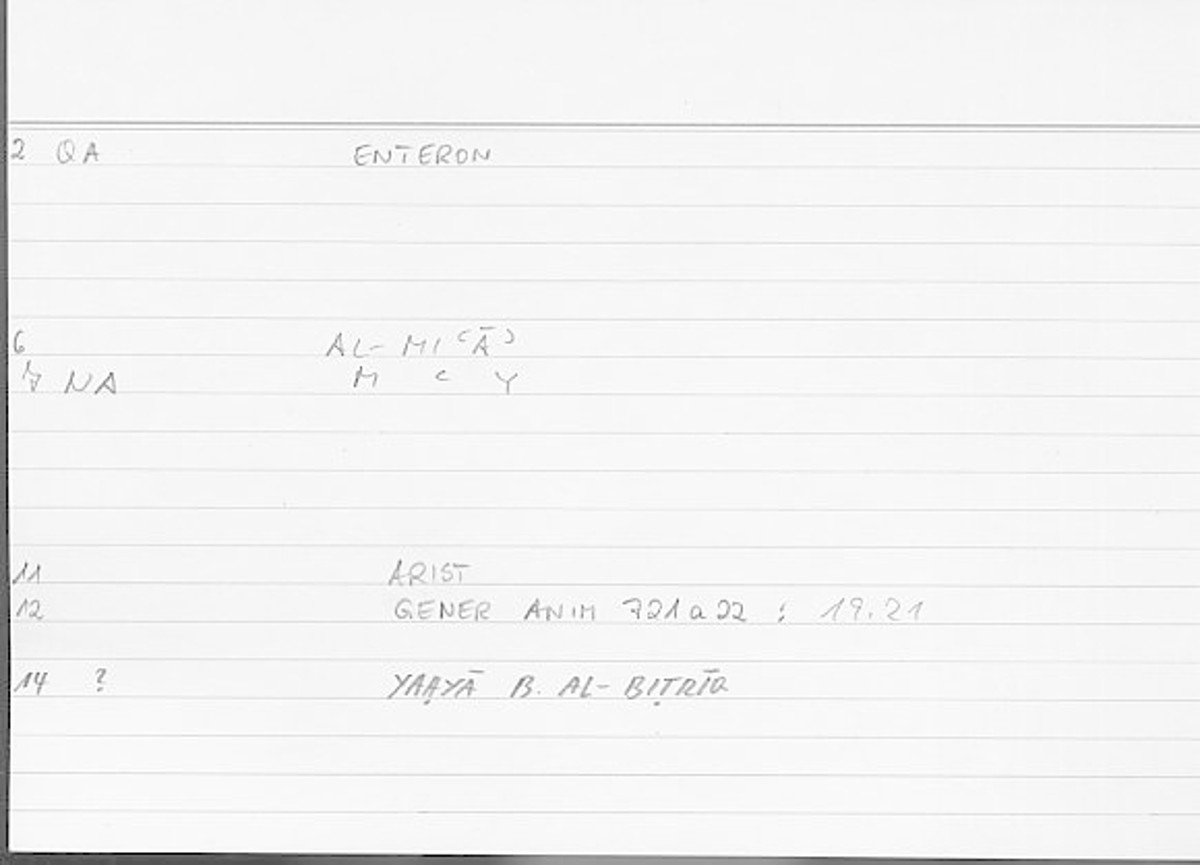 2 QA ENTERON
6 AL-MIʿĀʾ
7 NA M ʿ Y
11 ARIST
12 GENER ANIM 721a22 : 19.21
14 ? YAḤYĀ B. AL-BIṬRĪQ